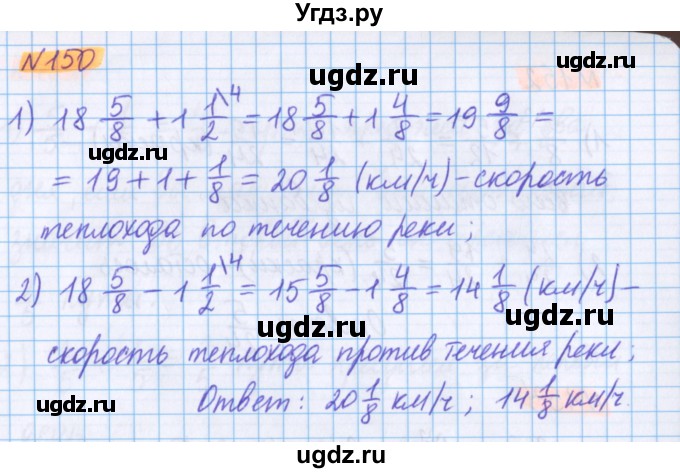 Угдз.ру
№150
1) 18 5/8 + 1 1/2\4 = 18 5/8 + 1 4/8 = 19 9/8 =
= 19 + 1 + 1/8 = 20 1/8 (км/ч) - скорость
теплохода по течению реки;
2) 18 5/8 - 1 1/2\4 = 15 5/8 - 1 4/8 = 14 1/8 (км/ч) -
скорость теплохода против течения реки;
Ответ: 20 1/8 км/ч; 14 1/8 км/ч.
ugdz.ru
ugdz.ru
ugdz.ru
ugdz.ru
ugdz.ru
ugdz.ru
ugdz.ru
ugdz.ru
ugdz.ru
ugdz.ru
ugdz.ru
ugdz.ru
ugdz.ru
Угдз.ру